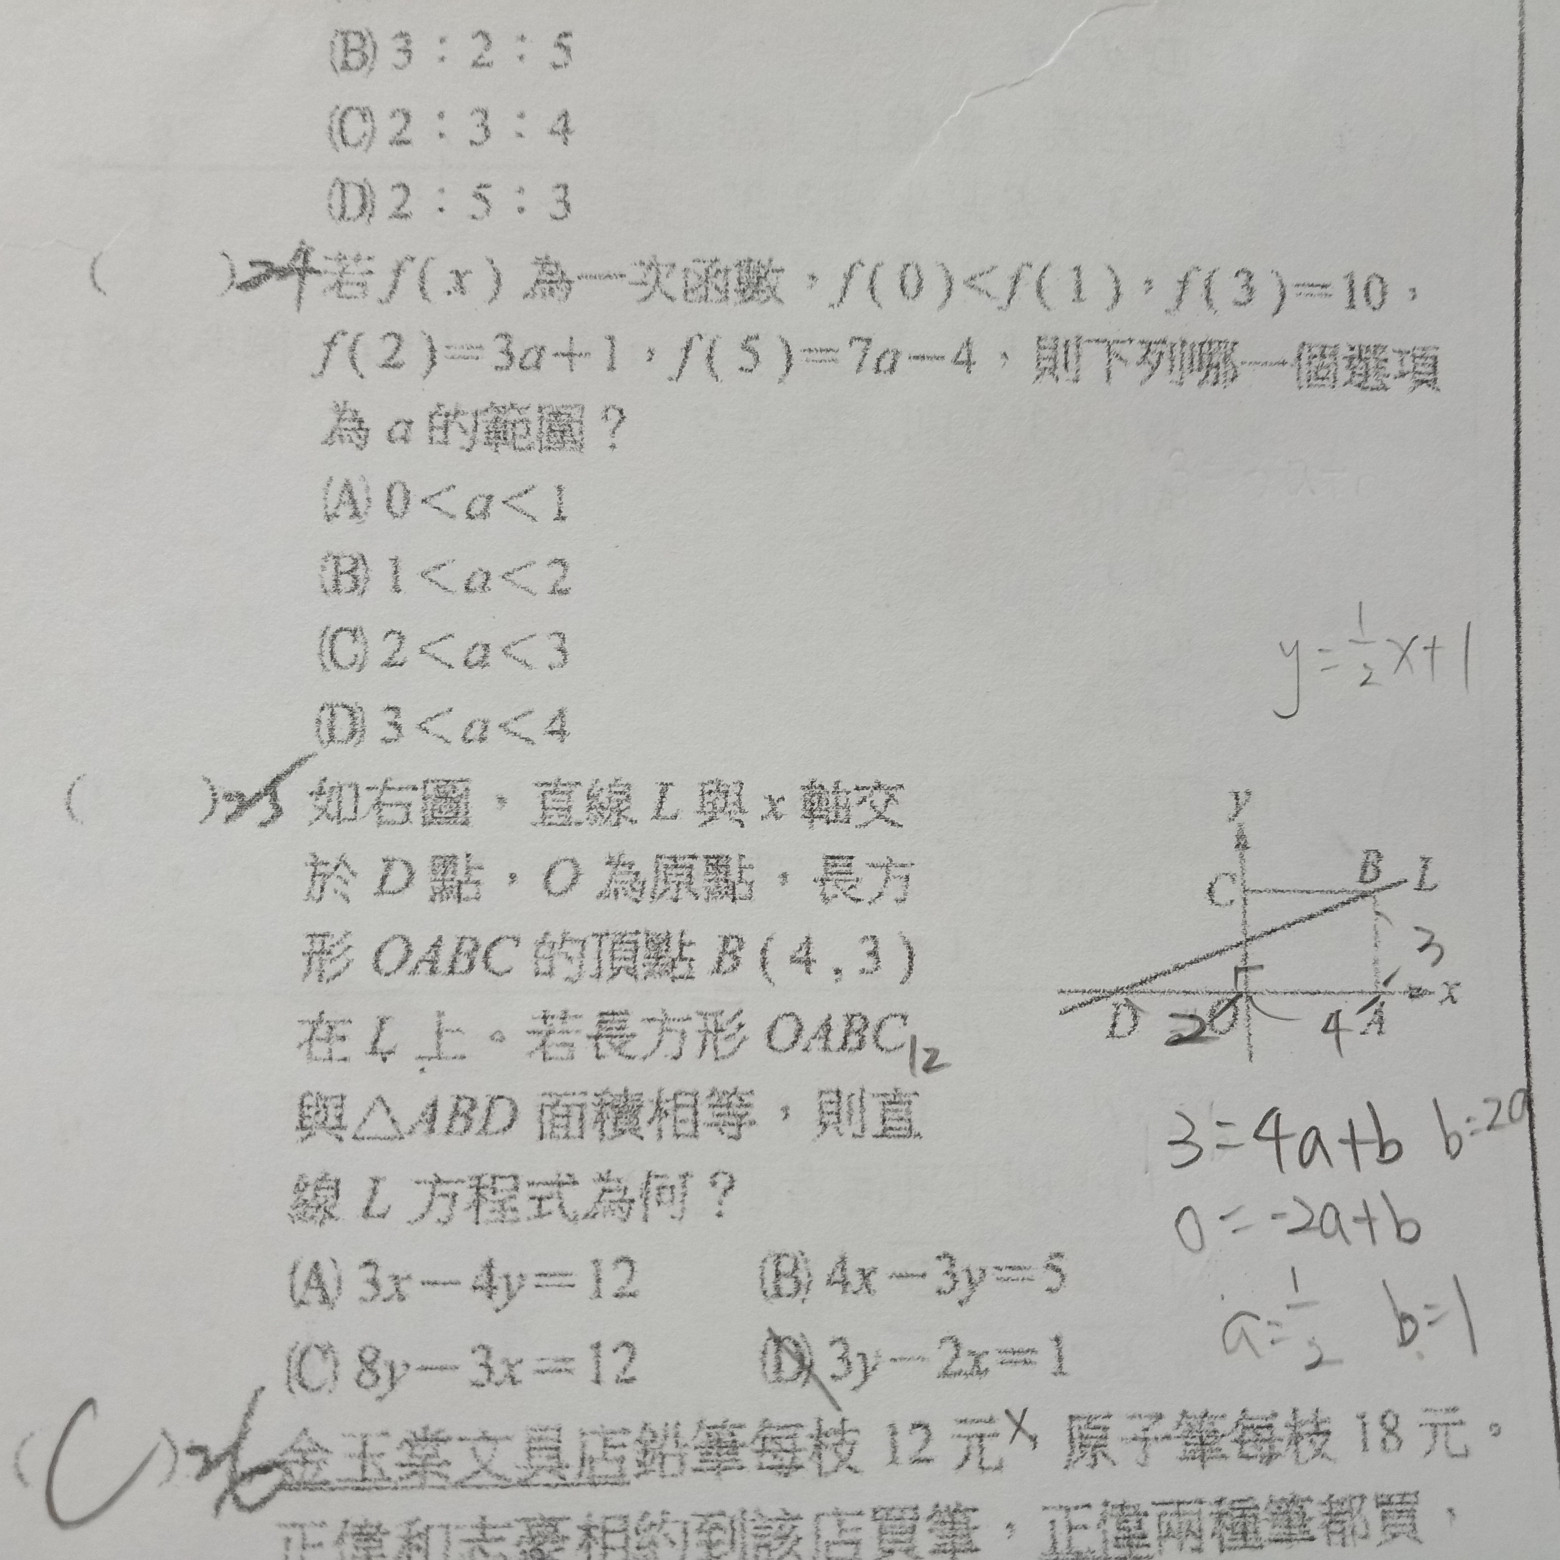 (B) 3：2：5
(C) 2：3：4
(D) 2：5：3
(　) 24 若 f(x) 為一次函數，f(0)<f(1)，f(3)=10，
f(2)=3a+1，f(5)=7a-4，則下列哪一個選項
為 a 的範圍？
(A) 0<a<1
(B) 1<a<2
(C) 2<a<3
(D) 3<a<4
y=1/2x+1
(　) 25 如右圖，直線 L 與 x 軸交
於 D 點，O 為原點，長方
形 OABC 的頂點 B(4,3)
在 L 上。若長方形 OABC 12
與△ABD 面積相等，則直
線 L 方程式為何？
y
C B L
3
D 2 O 4 A x
3=4a+b b=2a
0=-2a+b
a=1/2 b=1
(A) 3x-4y=12 (B) 4x-3y=5
(C) 8y-3x=12 (D) 3y-2x=1
(　) 26 金玉業文具店鉛筆每枝 12 元、原子筆每枝 18 元。
正偉和志豪相約到該店買筆，正偉兩種筆都買，